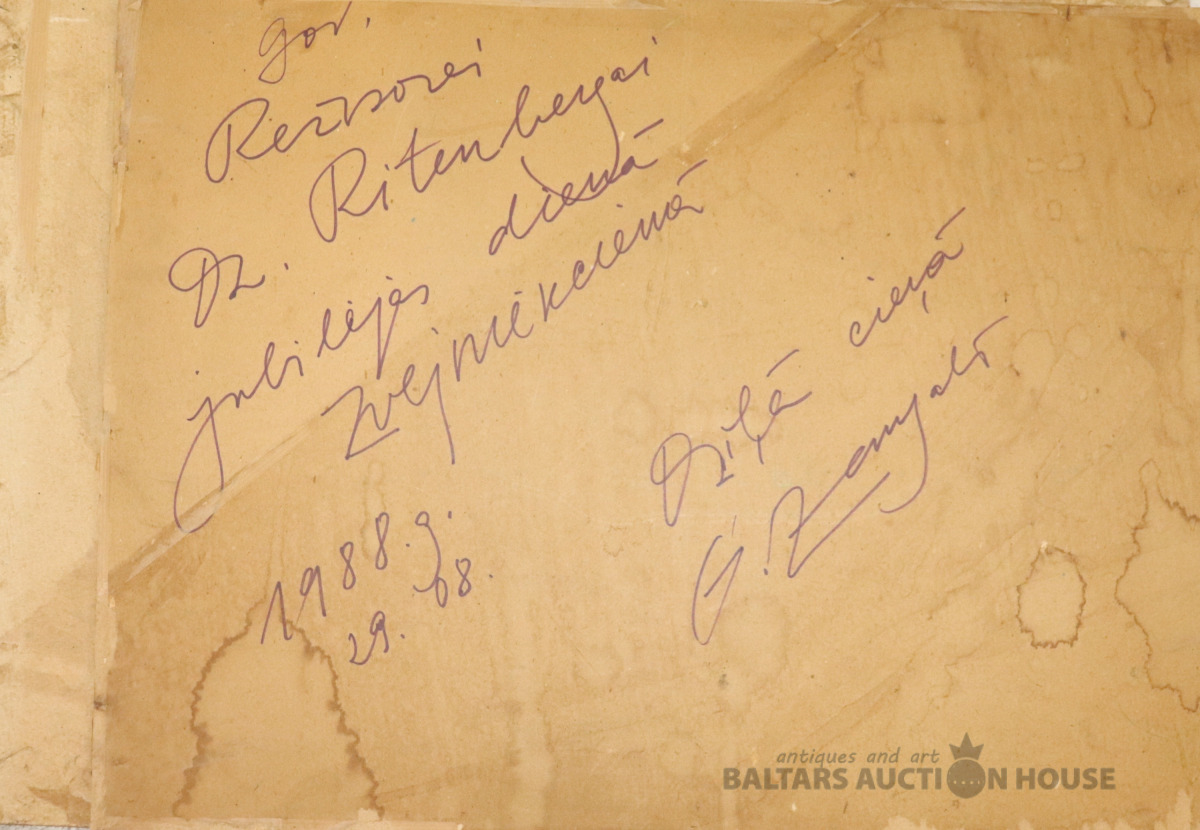 God.
Režisorei
Dz. Ritenbergai
jubilejas dienā
Zvejniekciemā
1988. g.
29. 08.
Dziļā cieņā
antiques and art
BALTARS AUCTION HOUSE